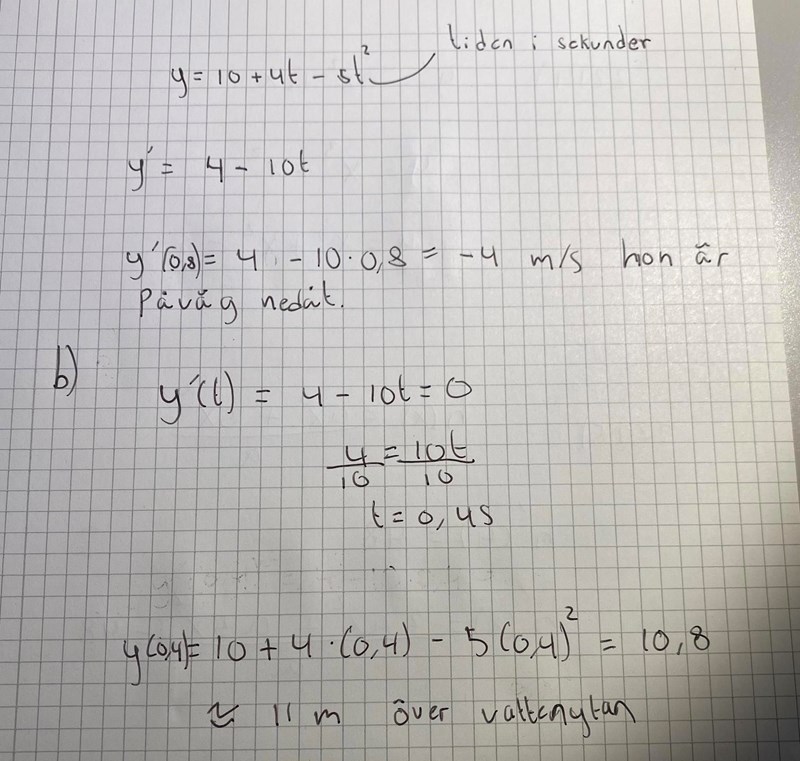 tiden i sekunder
y = 10 + 4t - 5t²
y' = 4 - 10t
y'(0,8) = 4 - 10·0,8 = -4 m/s hon är
påväg nedåt.
b)
y'(t) = 4 - 10t = 0
4/10 = 10t/10
t = 0,4s
y(0,4) = 10 + 4·(0,4) - 5(0,4)² = 10,8
≈ 11 m över vattenytan